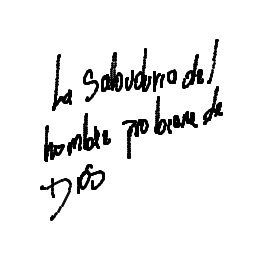 La sabiduria del
hombre probiene de
Dios